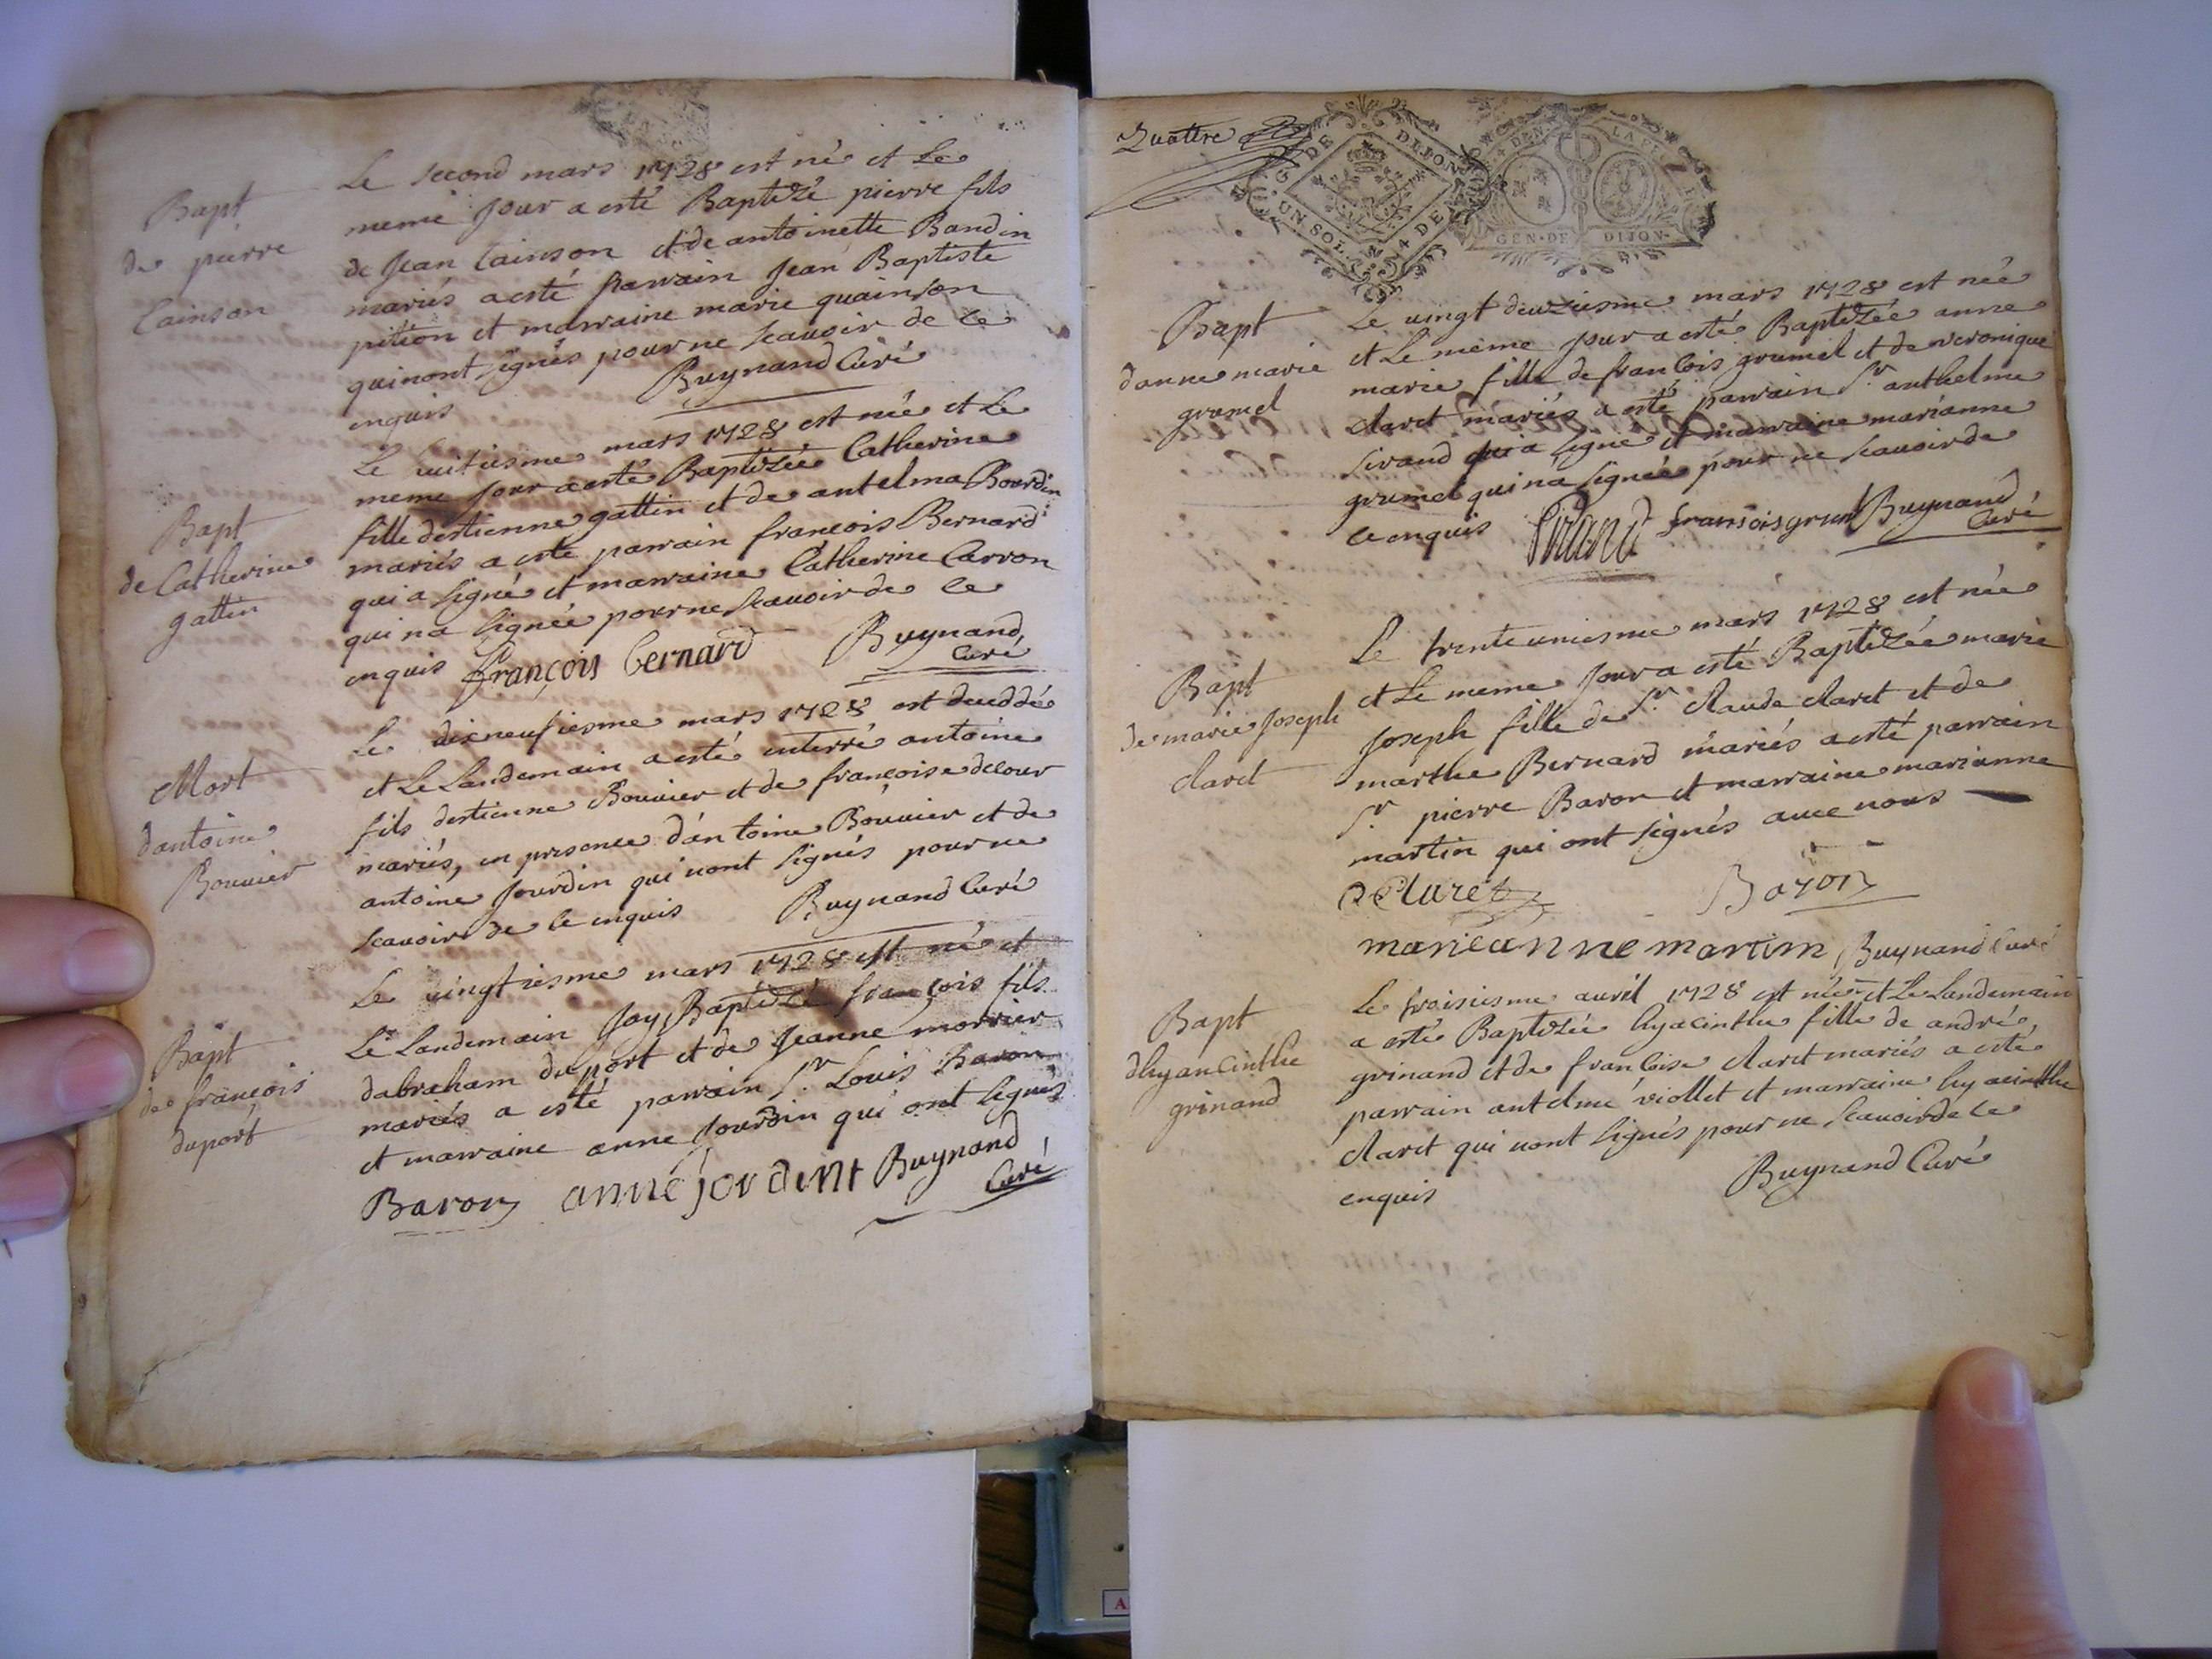 Bapt
de pierre
Cainson
Le second mars 1728 est né et Le
meme jour a esté Baptizé pierre fils
de Jean Cainson et de antoinette Bandin
mariés a esté parrain Jean Baptiste
pition et marraine marie quainson
qui nont signés pour ne scauoir de ce
enquis
Buynand Curé
Bapt
de Catherine
gattin
Le huitiesme mars 1728 est née et Le
meme jour a esté Baptizée Catherine
fille destienne gattin et de antelma Bourdin
mariés a esté parrain francois Bernard
qui a signé et marraine Catherine Carron
qui na signée pour ne scauoir de ce
enquis françois bernard Buynand
Curé
Mort
dantoine
Bouuier
Le dixneufiesme mars 1728 est deceddé
et Le Landemain a esté enterré antoine
fils destienne Bouuier et de francoise delour
mariés, en presence dantoine Bouuier et de
antoine Jourdin qui nont signés pour ne
scauoir de ce enquis Buynand Curé
Bapt
de francois
duport
Le vingtiesme mars 1728 est né et
Le Landemain Jay Baptizé francois fils
dabraham duport et de Jeanne morrier
mariés a esté parrain Sr. Louis Baron
et marraine anne Jourdin qui ont signés
Baron anne jordint Buynand
Curé
Quattre
G. DE DIJON
UN SOL 4 DEN
4 DEN LA FE
GEN. DE DIJON
Bapt
danne marie
grumel
Le vingt deuziesme mars 1728 est née
et Le même jour a esté Baptizée anne
marie fille de francois grumel et de veronique
claret mariés a esté parrain Sr. anthelme
sirand qui a signé et marraine marianne
grumel qui na signée pour ne scauoir de
ce enquis Sirand fransois grumel Buynand
Curé
Bapt
de marie Joseph
claret
Le trente uniesme mars 1728 est née
et Le meme Jour a esté Baptizée marie
Joseph fille de Sr. Claude claret et de
marthe Bernard mariés a esté parrain
Sr. pierre Baron et marraine marianne
martin qui ont signés auec nous
Claret Baron
marieanne martin Buynand Curé
Bapt
dhyancinthe
grinand
Le troisiesme auril 1728 est née et Le Landemain
a esté Baptizée hyacinthe fille de andré
grinand et de francoise claret mariés a esté
parrain antelme viollet et marraine hyacinthe
claret qui nont signés pour ne scauoir de ce
enquis
Buynand Curé